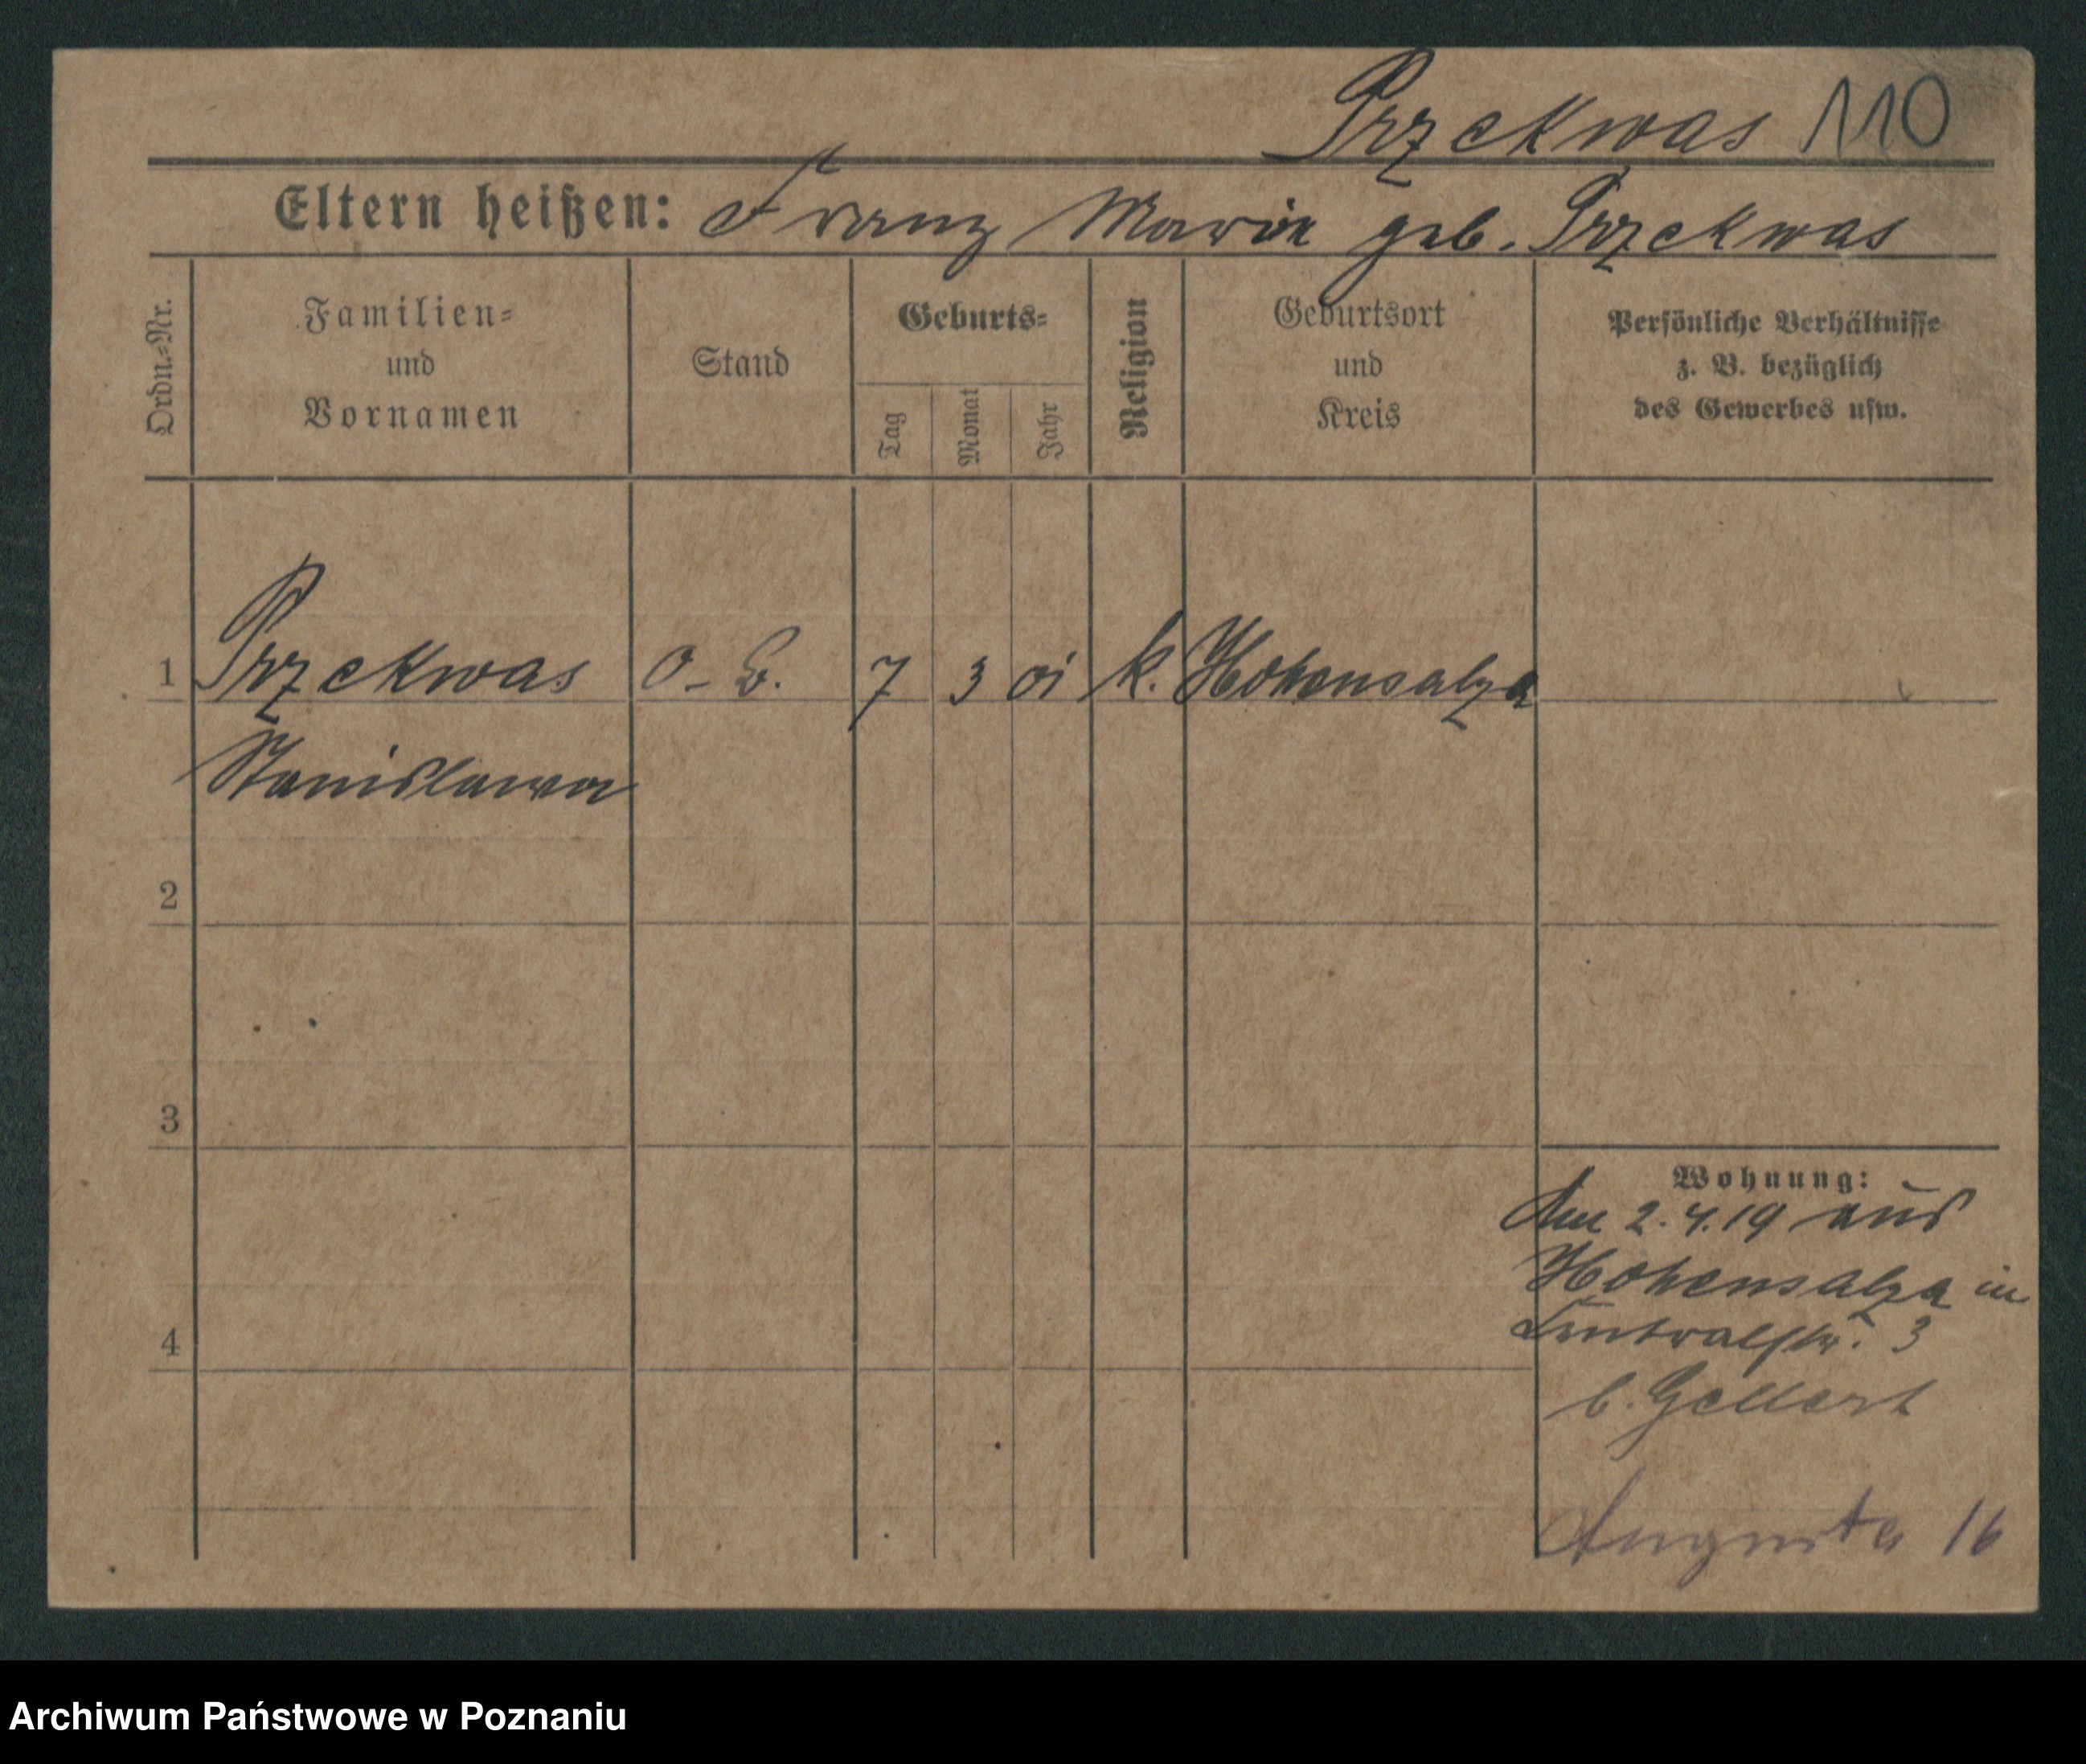 Przekwas 110
Eltern heißen: Franz Maria geb. Przekwas
Ordn.-Nr.
Familien- und Vornamen
Stand
Geburts-
Tag
Monat
Jahr
Religion
Geburtsort und Kreis
Persönliche Verhältnisse z. B. bezüglich des Gewerbes usw.
1 Przekwas 7 3 01 k. Hohensalza
Stanislawa
2
3
Wohnung:
2.4.19 aus
Hohensalza in
4
3
b. Gellert
Augusta 16
Archiwum Państwowe w Poznaniu